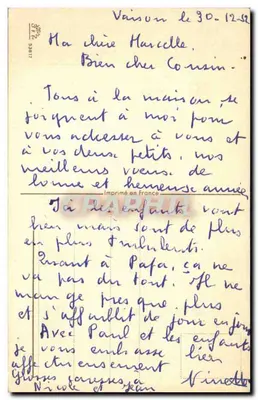 Vaison le 30-12-52
Ma chère Marcelle.
Bien cher Cousin.
Tous à la maison, se
joignent à moi pour
vous adresser à vous et
à vos deux petits, nos
meilleurs voeux de
bonne et heureuse année
Imprimé en France
Ici les enfants vont
bien mais sont de plus
en plus turbulents.
Quant à Papa, ça ne
va pas du tout. Il ne
mange presque plus
et s'affaiblit de jour en jour
Avec Paul et les enfants
je vous embrasse bien
affectueusement
Ninette
grosses caresses à
Nicole et Jean